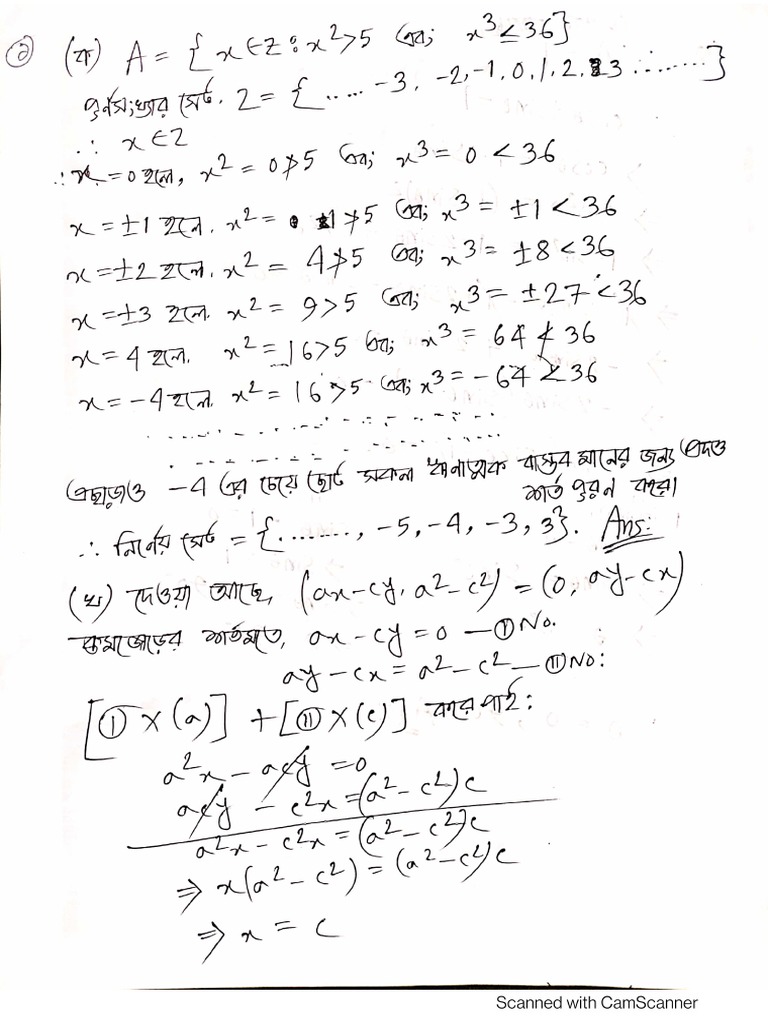 ২
(ক) A = {x ∈ Z : x² > 5 এবং x³ ≤ 36}
পূর্নসংখ্যার সেট, Z = {..... -3, -2, -1, 0, 1, 2, 3 .........}
∴ x ∈ Z
∴ x = 0 হলে, x² = 0 ≯ 5 এবং x³ = 0 < 36
x = ±1 হলে, x² = 1 ≯ 5 এবং x³ = ±1 < 36
x = ±2 হলে, x² = 4 ≯ 5 এবং x³ = ±8 < 36
x = ±3 হলে, x² = 9 > 5 এবং x³ = ±27 < 36
x = 4 হলে, x² = 16 > 5 এবং x³ = 64 ≮ 36
x = -4 হলে, x² = 16 > 5 এবং x³ = -64 < 36
এছাড়াও -4 এর চেয়ে ছোট সকল ঋনাত্মক বাস্তব মানের জন্য প্রদত্ত
শর্ত পুরন করে।
∴ নির্নেয় সেট = {........, -5, -4, -3, 3}. Ans:
(খ) দেওয়া আছে, (ax-cy, a²-c²) = (0, ay-cx)
ক্রমজোড়ের শর্তমতে, ax-cy = 0 — ① No.
ay-cx = a²-c² — ② No:
[① × (a)] + [② × (c)] করে পাই:
a²x - acy = 0
acy - c²x = (a²-c²)c
a²x - c²x = (a²-c²)c
⇒ x(a²-c²) = (a²-c²)c
⇒ x = c
Scanned with CamScanner